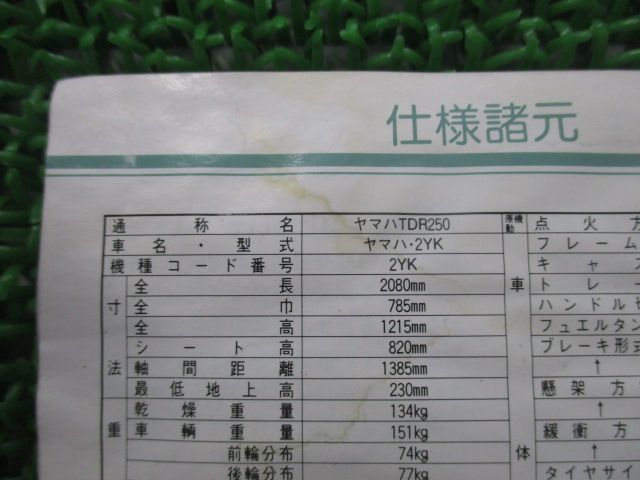 仕様諸元
通称名 ヤマハTDR250 原動機 点火方
車名・型式 ヤマハ・2YK フレーム
機種コード番号 2YK 車 キャス
寸 全長 2080mm トレー
全巾 785mm ハンドル
全高 1215mm フュエルタン
シート高 820mm ブレーキ形式
法 軸間距離 1385mm ↑
最低地上高 230mm 懸架方
乾燥重量 134kg ↑
重 車輌重量 151kg 体 緩衝方
前輪分布 74kg ↑
後輪分布 77kg タイヤサイ